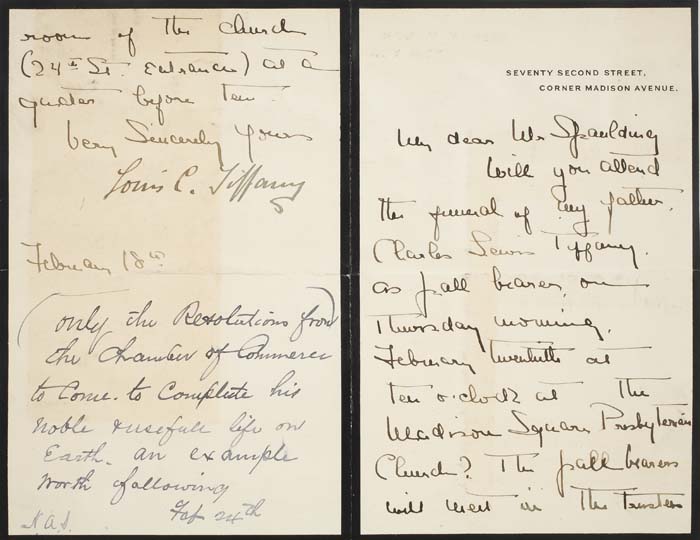 SEVENTY SECOND STREET,
CORNER MADISON AVENUE.
My dear Mr Spaulding
Will you attend
the funeral of my father,
Charles Lewis Tiffany,
as pall bearer, on
Thursday morning,
February twentieth at
ten o'clock at the
Madison Square Presbyterian
Church? The pall bearers
will meet in the Trustees
room of the church
(24th St. entrance) at a
quarter before ten.
Very Sincerely Yours
Louis C. Tiffany
February 18th
(only the Resolutions from)
the Chamber of Commerce
to Come. to Complete his
noble & usefull life on
Earth. an example
worth following
Feb 24th
N.A.S.